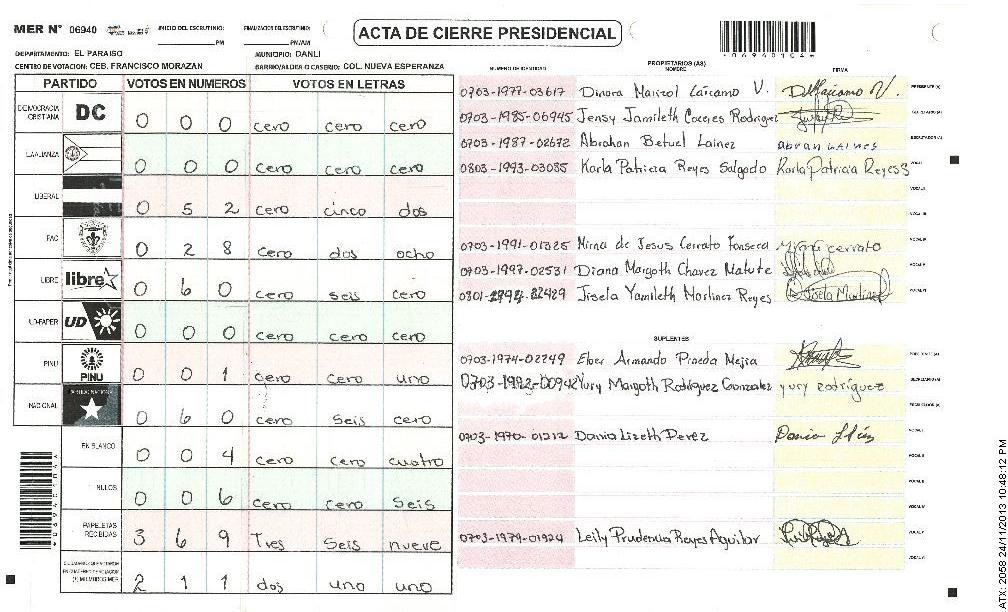 MER N° 06940 INICIO DEL ESCRUTINIO: PM FINALIZACION DEL ESCRUTINIO: PM/AM
ACTA DE CIERRE PRESIDENCIAL
DEPARTAMENTO: EL PARAISO MUNICIPIO: DANLI
CENTRO DE VOTACION: CEB. FRANCISCO MORAZAN BARRIO/ALDEA O CASERIO: COL. NUEVA ESPERANZA
06960104
PARTIDO VOTOS EN NUMEROS VOTOS EN LETRAS
DEMOCRACIA CRISTIANA DC 0 0 0 cero cero cero
LA ALIANZA 0 0 0 cero cero cero
LIBERAL 0 5 2 cero cinco dos
PAC 0 2 8 cero dos ocho
LIBRE libre 0 6 0 cero seis cero
UD-FAPER UD 0 0 0 cero cero cero
PINU PINU 0 0 1 cero cero uno
NACIONAL 0 6 0 cero seis cero
EN BLANCO 0 0 4 cero cero cuatro
NULOS 0 0 6 cero cero seis
PAPELETAS RECIBIDAS 3 6 9 Tres seis nueve
2 1 1 dos uno uno
NUMERO DE IDENTIDAD PROPIETARIOS (AS) NOMBRE FIRMA
0703-1977-03617 Dinora Marizol Laicamo V. PRESIDENTE (A)
0703-1985-06945 Jensy Jamileth Caceres Rodriguez SECRETARIO (A)
0703-1987-02672 Abrahan Betuel Lainez abran LAINES ESCRUTADOR (A)
0803-1993-03085 Karla Patricia Reyes Salgado Karla Patricia Reyes S VOCAL I
VOCAL II
VOCAL III
0703-1991-01325 Mirna de Jesus Cerrato Fonseca Mirna cerrato VOCAL IV
0703-1997-02531 Diana Margoth Chavez Matute VOCAL V
0801- -22429 Jisela Yamileth Martinez Reyes Jisela Martinez VOCAL VI
SUPLENTES
0703-1974-02249 Elber Armando Pineda Mejia PRESIDENTE (A)
0703-1992-00942 Yury Margoth Rodriguez Gonzalez yury rodríguez SECRETARIO (A)
ESCRUTADOR (A)
0703-1970-01212 Dania Lizeth Perez VOCAL I
VOCAL II
VOCAL III
VOCAL IV
0703-1979-01924 Leily Prudencia Reyes Aguilar VOCAL V
VOCAL VI
ATX: 2058 24/11/2013 10:48:12 PM